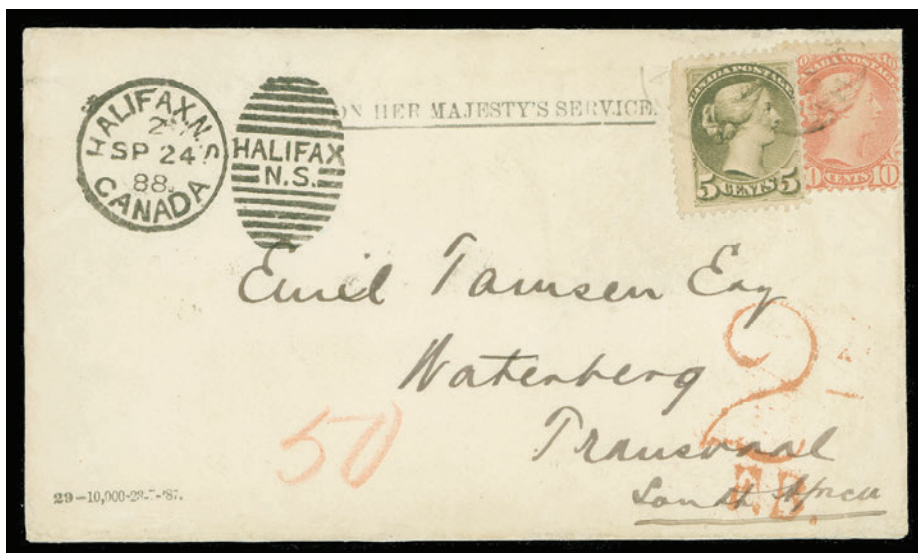 HALIFAX.N.S
2
SP 24
88.
CANADA
HALIFAX
N.S.
ON HER MAJESTY'S SERVICE.
CANADA POSTAGE
5 CENTS 5
CANADA POSTAGE
10 CENTS 10
Emil Tamsen Esq
Waterberg
Transvaal
South Africa
50
2
29-10,000-